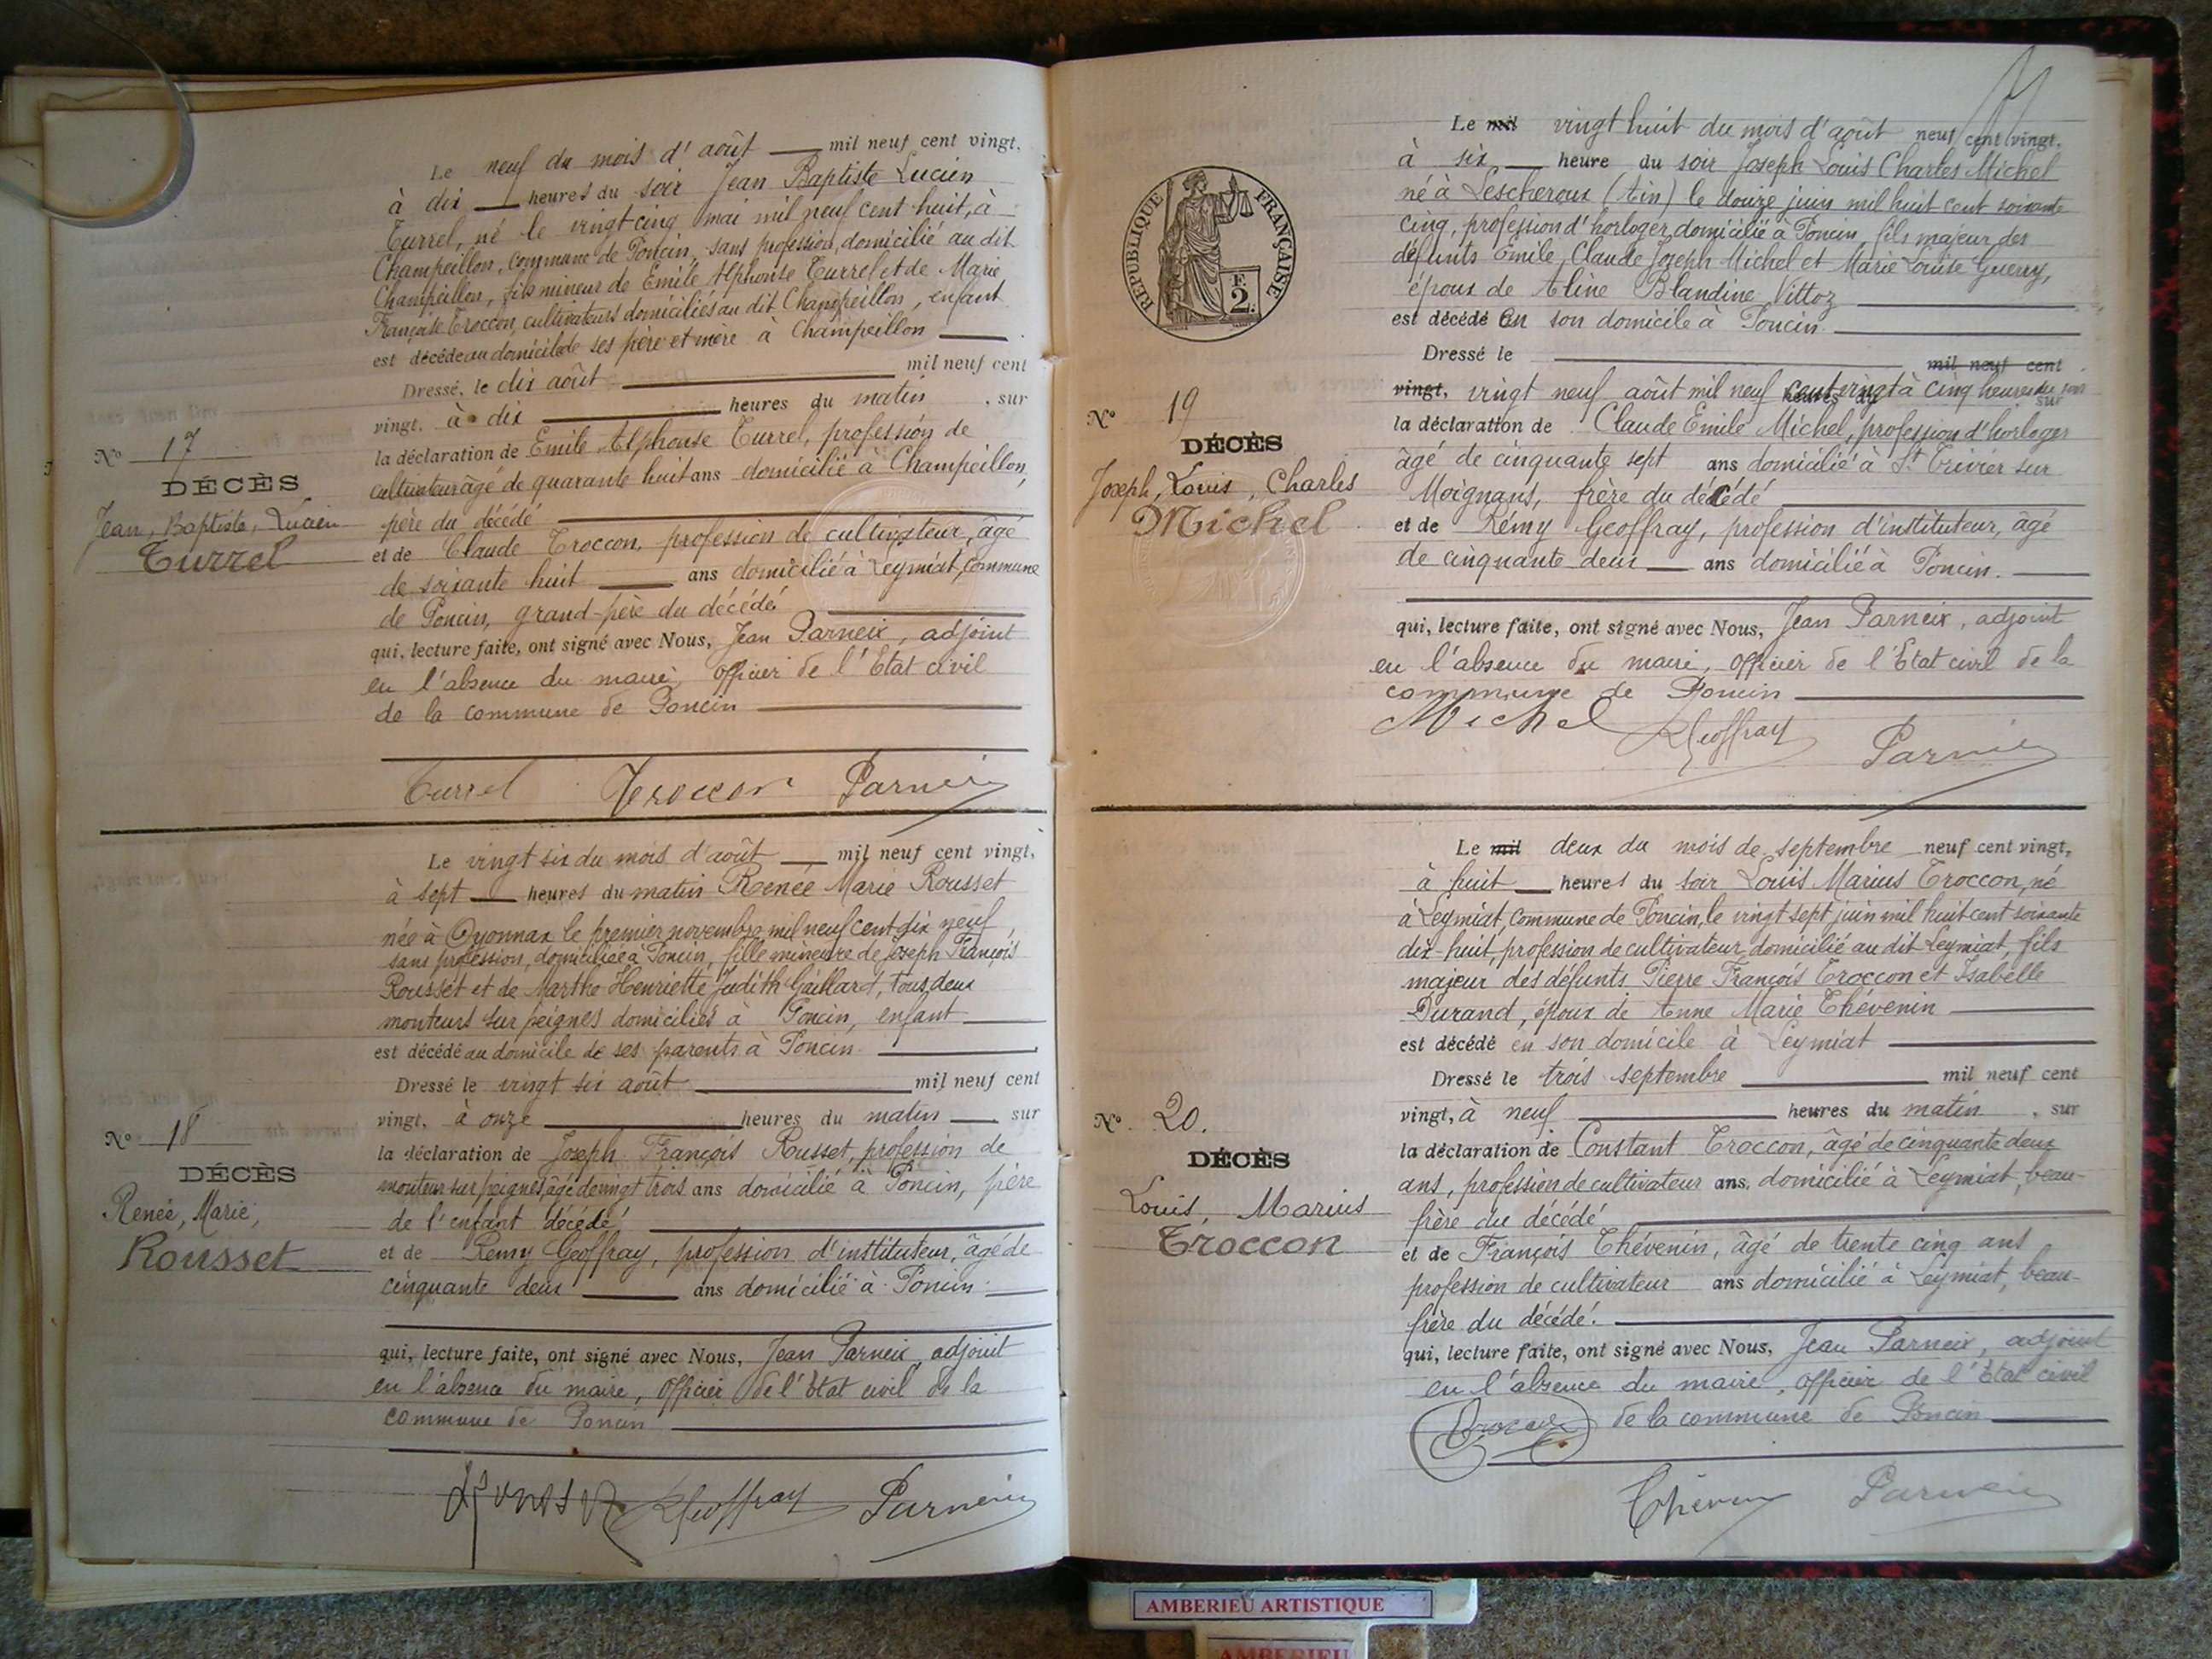 Le neuf du mois d'août mil neuf cent vingt.
à dix heures du soir Jean Baptiste Lucien
Turrel, né le vingt cinq mai mil neuf cent huit, à
Champeillon, commune de Poncin, sans profession, domicilié au dit
Champeillon, fils mineur de Emile Alphonse Turrel et de Marie
Françoise Troccon, cultivateurs domiciliés au dit Champeillon, enfant
est décédé au domicile de ses père et mère à Champeillon
Dressé, le dix août mil neuf cent
vingt, à dix heures du matin, sur
la déclaration de Emile Alphonse Turrel, profession de
cultivateur âgé de quarante huit ans domicilié à Champeillon,
père du décédé
et de Claude Troccon, profession de cultivateur, âgé
de soixante huit ans domicilié à Leymiat, commune
de Poncin, grand-père du décédé
qui, lecture faite, ont signé avec Nous, Jean Parneix, adjoint
en l'absence du maire, officier de l'Etat civil
de la commune de Poncin
Turrel Troccon Parneix
N° 17
DÉCÈS
Jean, Baptiste, Lucien
Turrel
Le vingt six du mois d'août mil neuf cent vingt,
à sept heures du matin Renée Marie Rousset
née à Oyonnax le premier novembre mil neuf cent dix neuf,
sans profession, domiciliée à Poncin, fille mineure de Joseph François
Rousset et de Marthe Henriette Judith Gaillard, tous deux
monteurs sur peignes domiciliés à Poncin, enfant
est décédé au domicile de ses parents à Poncin
Dressé le vingt six août mil neuf cent
vingt, à onze heures du matin sur
la déclaration de Joseph François Rousset, profession de
monteur sur peignes, âgé de vingt trois ans domicilié à Poncin, père
de l'enfant décédé
et de Remy Geoffray, profession d'instituteur, âgé de
cinquante deux ans domicilié à Poncin
qui, lecture faite, ont signé avec Nous, Jean Parneix, adjoint
en l'absence du maire, officier de l'Etat civil de la
commune de Poncin
RGeoffray Parneix
N° 18
DÉCÈS
Renée, Marie,
Rousset
RÉPUBLIQUE FRANÇAISE
2F.
Le mil vingt huit du mois d'août neuf cent vingt,
à six heure du soir Joseph Louis Charles Michel
né à Lescheroux (Ain) le douze juin mil huit cent soixante
cinq, profession d'horloger domicilié à Poncin, fils majeur des
défunts Emile, Claude Joseph Michel et Marie Louise Guerry,
époux de Aline Blandine Vittoz
est décédé en son domicile à Poncin.
Dressé le mil neuf cent
vingt, vingt neuf août mil neuf cent vingt à cinq heures du soir
heures du sur
la déclaration de Claude Emile Michel, profession d'horloger
âgé de cinquante sept ans domicilié à St Trivier sur
Moignans, frère du décédé
et de Rémy Geoffray, profession d'instituteur, âgé
de cinquante deux ans domicilié à Poncin.
qui, lecture faite, ont signé avec Nous, Jean Parneix, adjoint
en l'absence du maire, officier de l'Etat civil de la
commune de Poncin
Michel RGeoffray Parneix
N° 19
DÉCÈS
Joseph, Louis, Charles
Michel
Le mil deux du mois de septembre neuf cent vingt,
à huit heures du soir Louis Marius Troccon, né
à Leymiat, commune de Poncin, le vingt sept juin mil huit cent soixante
dix-huit, profession de cultivateur, domicilié au dit Leymiat, fils
majeur des défunts Pierre François Troccon et Isabelle
Durand, époux de Anne Marie Thévenin
est décédé en son domicile à Leymiat
Dressé le trois septembre mil neuf cent
vingt, à neuf heures du matin, sur
la déclaration de Constant Troccon, âgé de cinquante deux
ans, profession de cultivateur ans, domicilié à Leymiat, beau-
frère du décédé
et de François Thévenin, âgé de trente cinq ans
profession de cultivateur ans domicilié à Leymiat, beau-
frère du décédé.
qui, lecture faite, ont signé avec Nous, Jean Parneix, adjoint
en l'absence du maire, officier de l'Etat civil
de la commune de Poncin
Troccon
Thévenin Parneix
N° 20.
DÉCÈS
Louis, Marius
Troccon
AMBERIEU ARTISTIQUE
AMBERIEU